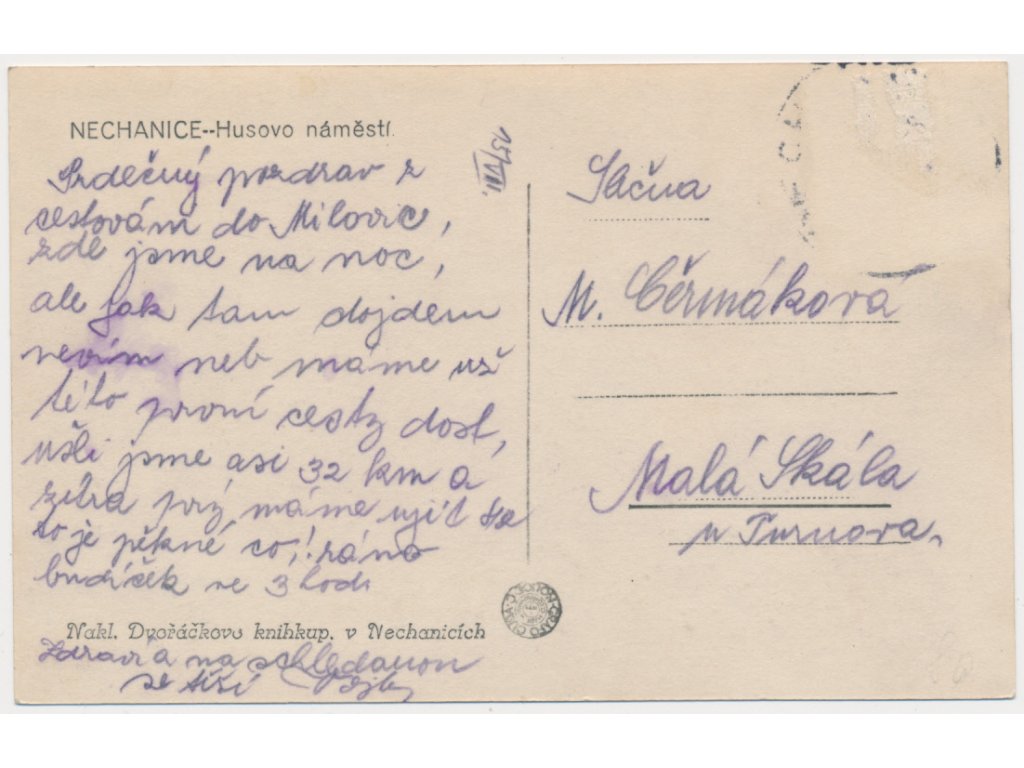 NECHANICE--Husovo náměstí.
15/VIII.
Srdečný pozdrav z
cestování do Milovic,
zde jsme na noc,
ale jak tam dojdem
nevím neb máme už
této první cesty dost,
ušli jsme asi 32 km a
zítra prý máme ujít 42
to je pěkné co,! ráno
budíček ve 3 hod.
Nakl. Dvořáčkovo knihkup. v Nechanicích
Zdraví a na schledanou
se těší
Slečna
M. Čěrmáková
Malá Skála
u Turnova.